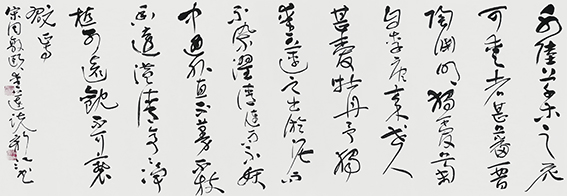 水陸草木之花
可愛者甚蕃晋
陶淵明獨愛菊
自李唐來世人
甚愛牡丹予獨
愛蓮之出淤泥而
不染濯清漣而不妖
中通外直不蔓不枝
香遠益清亭亭淨
植可遠觀不可褻
玩焉
宋周敦頤愛蓮説